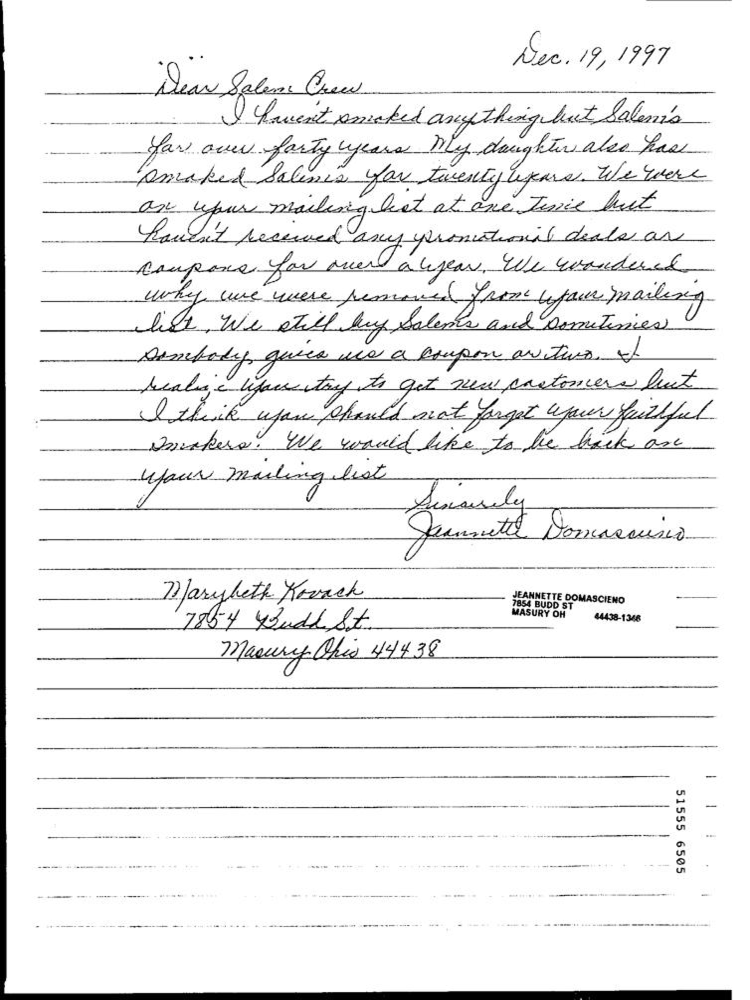 Dec. 19, 1997
Dear Salem Crew
I haven't smoked anything but Salem's
for over forty years My daughter also has
smoked Salem's for twenty years. We were
on your mailing list at one time but
haven't received any promotional deals or
coupons for over a year. We wondered
why we were removed from your mailing
list. We still buy Salems and sometimes
sombody gives us a coupon or two. I
realize you try to get new customers but
I think you should not forget your faithful
smokers. We would like to be back on
your mailing list
Sincerely
Jeannette Domascieno
Marybeth Kovach
7854 Budd St.
Masury Ohio 44438
JEANNETTE DOMASCIENO
7854 BUDD ST
MASURY OH 44438-1366
51555 6505